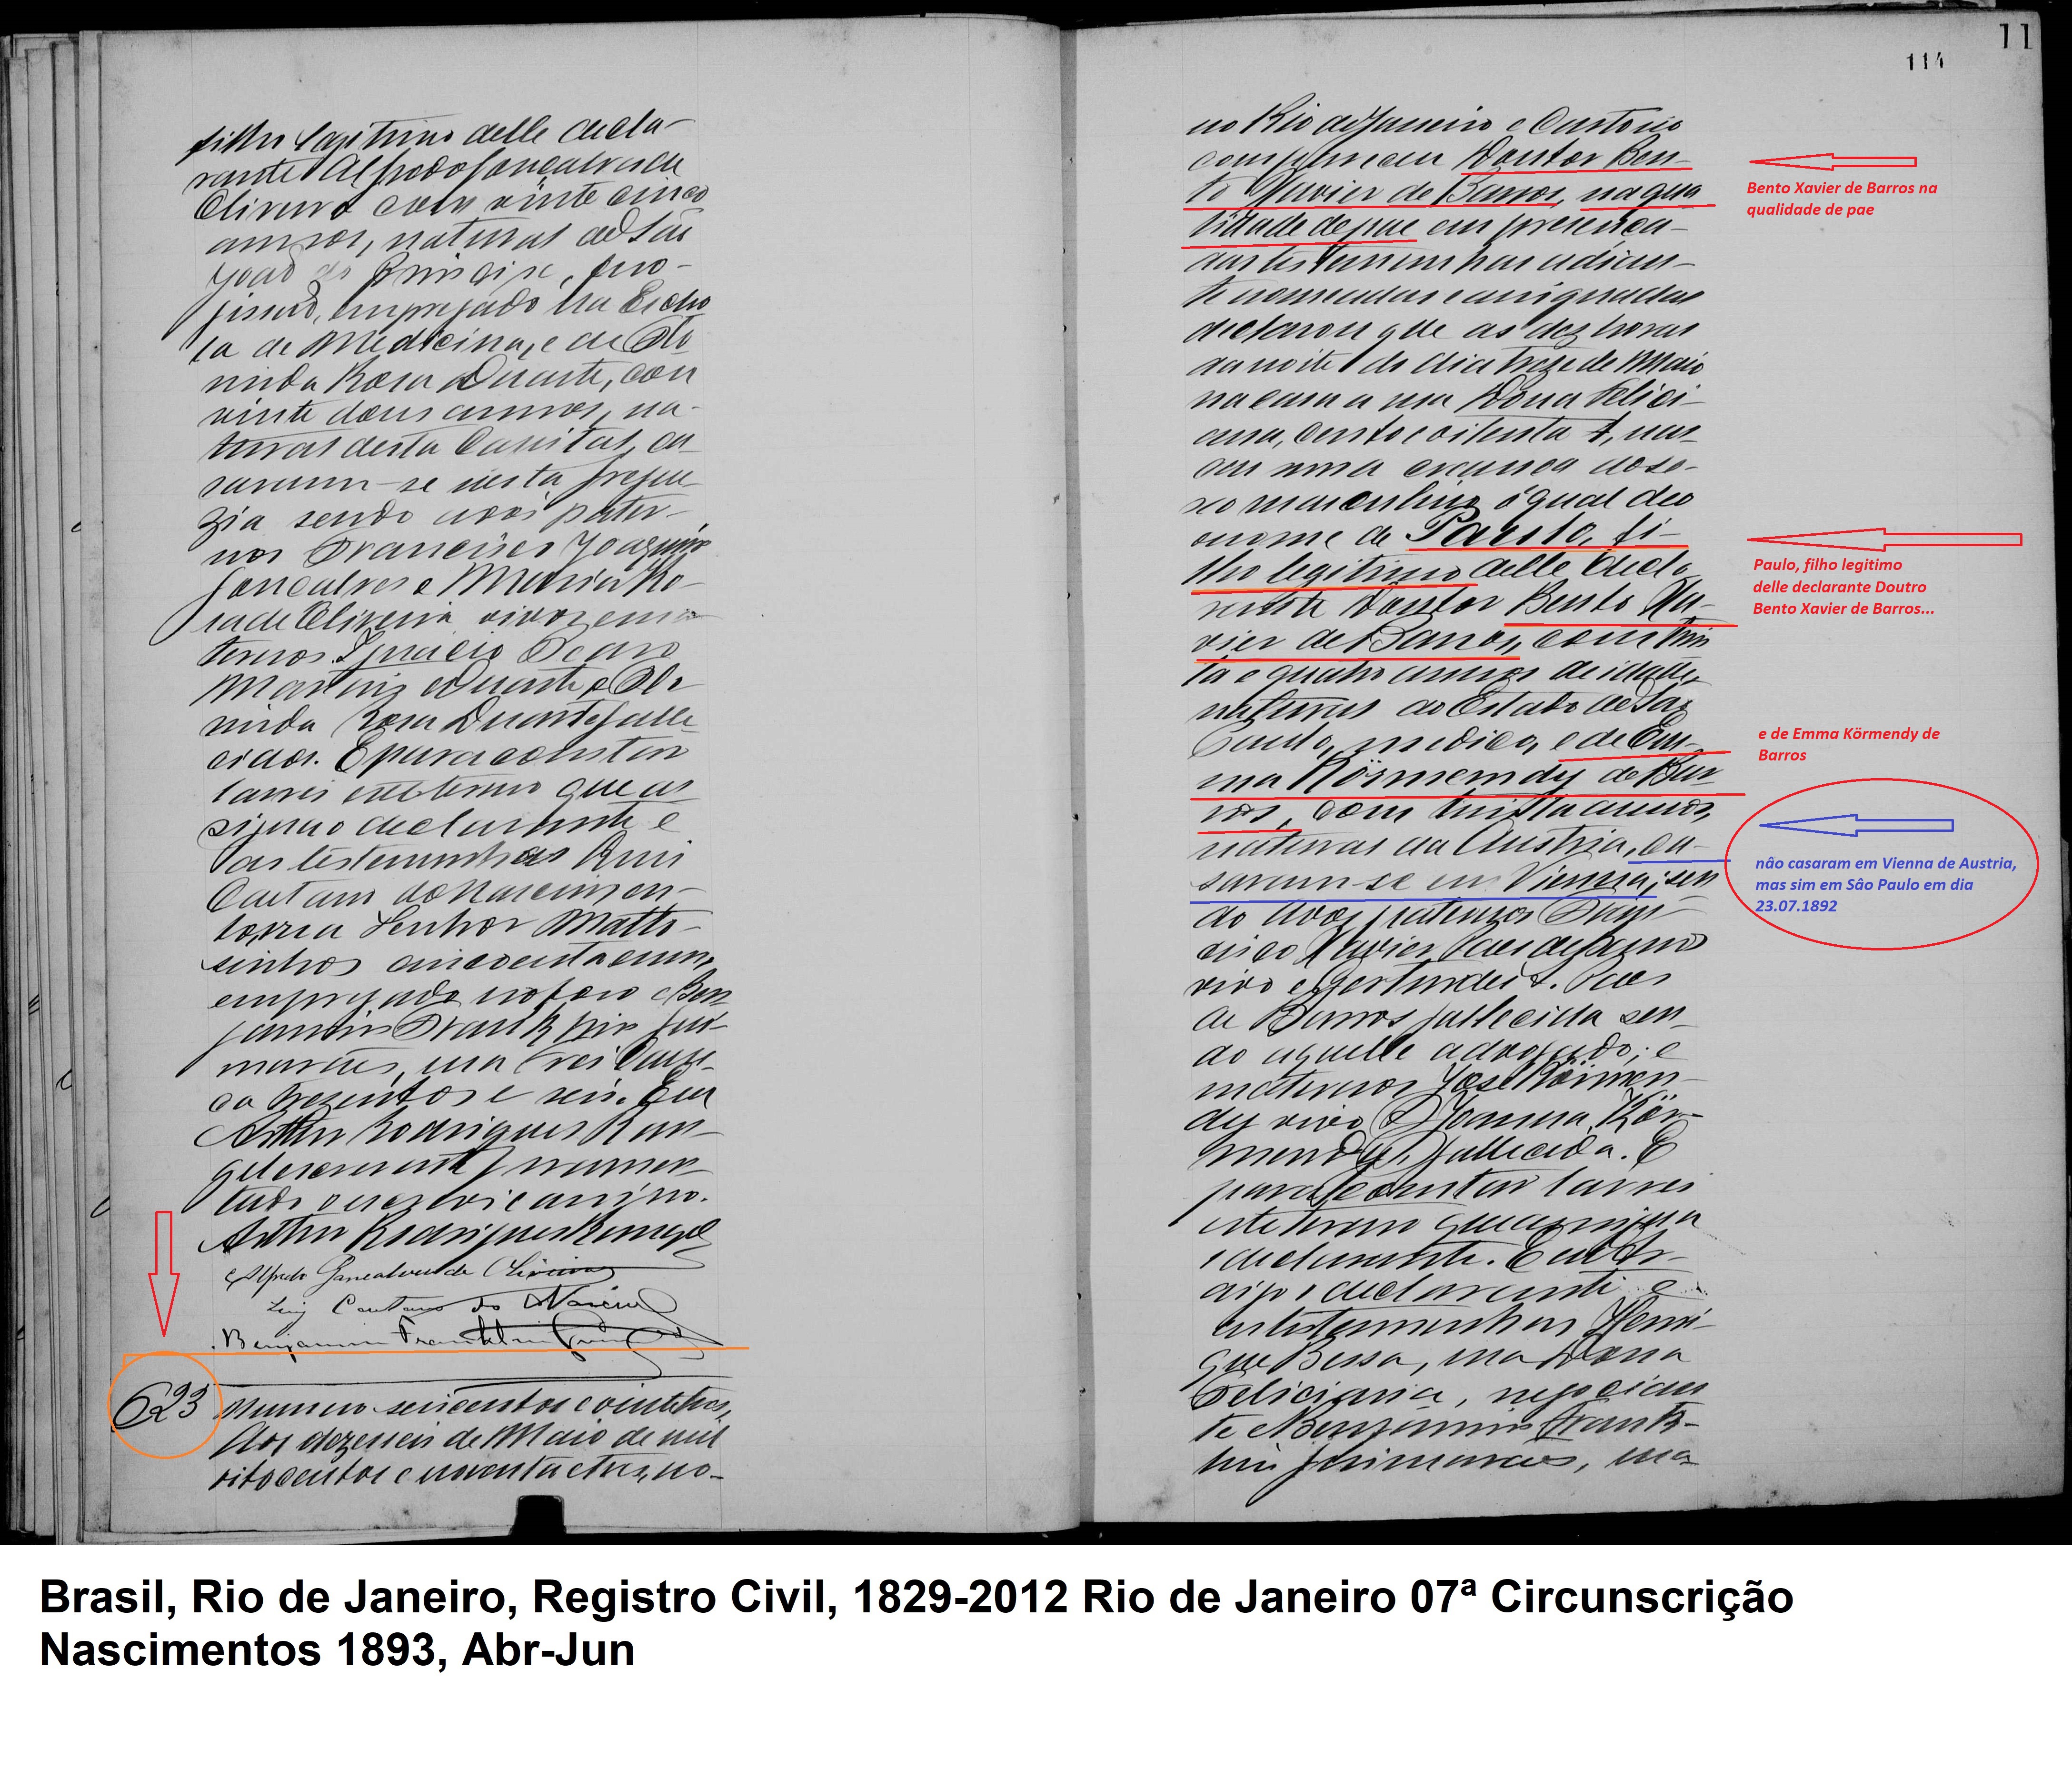 filho legitimo delle decla-
rante Alfredo Gonçalves de
Oliveira com vinte cinco
annos, natural de São
João do Principe, pro-
empregado na Escho
la de Medicina, e de Ol
minda Rosa Duarte, com
vinte dous annos, na-
tural desta Capital, ca-
saram-se nesta fregue
zia sendo avós pater-
nos Francisco Joaquim
Gonçalves e Maria Ro-
sa de Oliveira vivos e ma
ternos Ignacio
Martins Duarte e Ol
minda Rosa Duarte falle
cidos. E para constar
lavrei este termo que as
signo declarante e
as testemunhas Luis
Caetano do Nascimen-
to, rua Senhor Matto-
sinhos cincoenta e um,
empregado no foro e Ben
jamin Franklin Gui-
marães, rua Frei Cane-
ca trezentos e seis. Eu
Arthur Rodrigues Ran-
gel escrevente juramen
tado o escrevi e assigno.
Arthur Rodrigues Rangel
Alfredo Gonçalves de Oliveira
Luiz Caetano do Nascim
Benjamin Franklin Guim
623 Numero seiscentos e vinte tres,
Aos dezesseis de Maio de mil
oitocentos e noventa e tres, no-
11
114
no Rio de Janeiro e Cartorio
compareceu Doutor Ben-
to Xavier de Barros, na qua
lidade de pae em presença
das testemunhas adian-
te nomeadas e assignadas
declarou que as dez horas
da noite do dia treze de Maio
na casa a rua Dona Felici-
ana, cento e oitenta A, nas-
ceu uma creança do se-
xo masculino o qual deo
o nome de Paulo, fi-
lho legitimo delle decla
rante Doutor Bento Xa-
vier de Barros, com trin
ta e quatro annos de idade,
natural do Estado de São
Paulo, medico, e de Em-
ma Körmendy de Bar
ros, com trinta annos,
natural da Austria, ca-
saram-se em Vienna; sen
do avós paternos Fran-
cisco Xavier Paes de Barros
vivo e Gertrudes A. Paes
de Barros fallecida sen-
do aquelle advogado; e
maternos José Körmen-
dy vivo e Joanna Kör-
mendy, fallecida. E
para constar lavrei
este termo que assigna
o declarante.
o declarante e
as testemunhas Henri-
que Bessa, rua Dona
Feliciana, negocian
te e Benjamin Frank-
lin Guimarães, rua
Bento Xavier de Barros na
qualidade de pae
Paulo, filho legitimo
delle declarante Doutro
Bento Xavier de Barros...
e de Emma Körmendy de
Barros
nâo casaram em Vienna de Austria,
mas sim em Sâo Paulo em dia
23.07.1892
Brasil, Rio de Janeiro, Registro Civil, 1829-2012 Rio de Janeiro 07ª Circunscrição
Nascimentos 1893, Abr-Jun